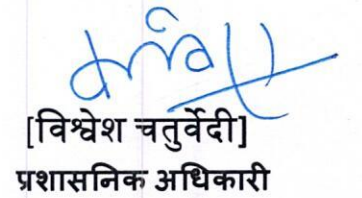 [विश्वेश चतुर्वेदी]
प्रशासनिक अधिकारी